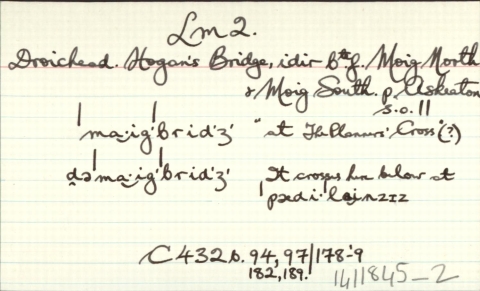 Lm 2.
Droichead. Hogan's Bridge, idir btf. Moig North
& Moig South. p. Askeaton
S.O. 11
ma·igʹbridʹʒʹ "at The Planners' Cross" (?)
d̪əma·igʹbridʹʒʹ It crosses here below at
pædiˈləinzɪz
C 432 b. 94, 97/178-9
182, 189.
1411845_2